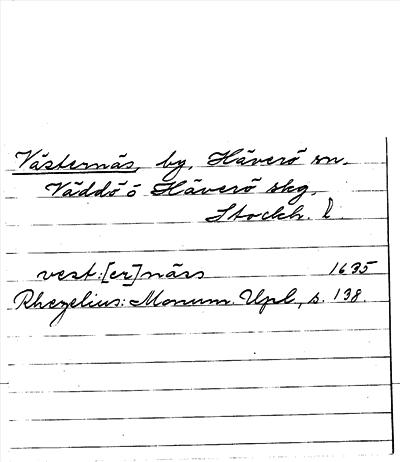 Västernäs, by, Häverö sn.
Väddö ö Häverö skg,
Stockh. l.
vest:[er]närs 1635
Rhezelius: Monum. Upl., s. 138.